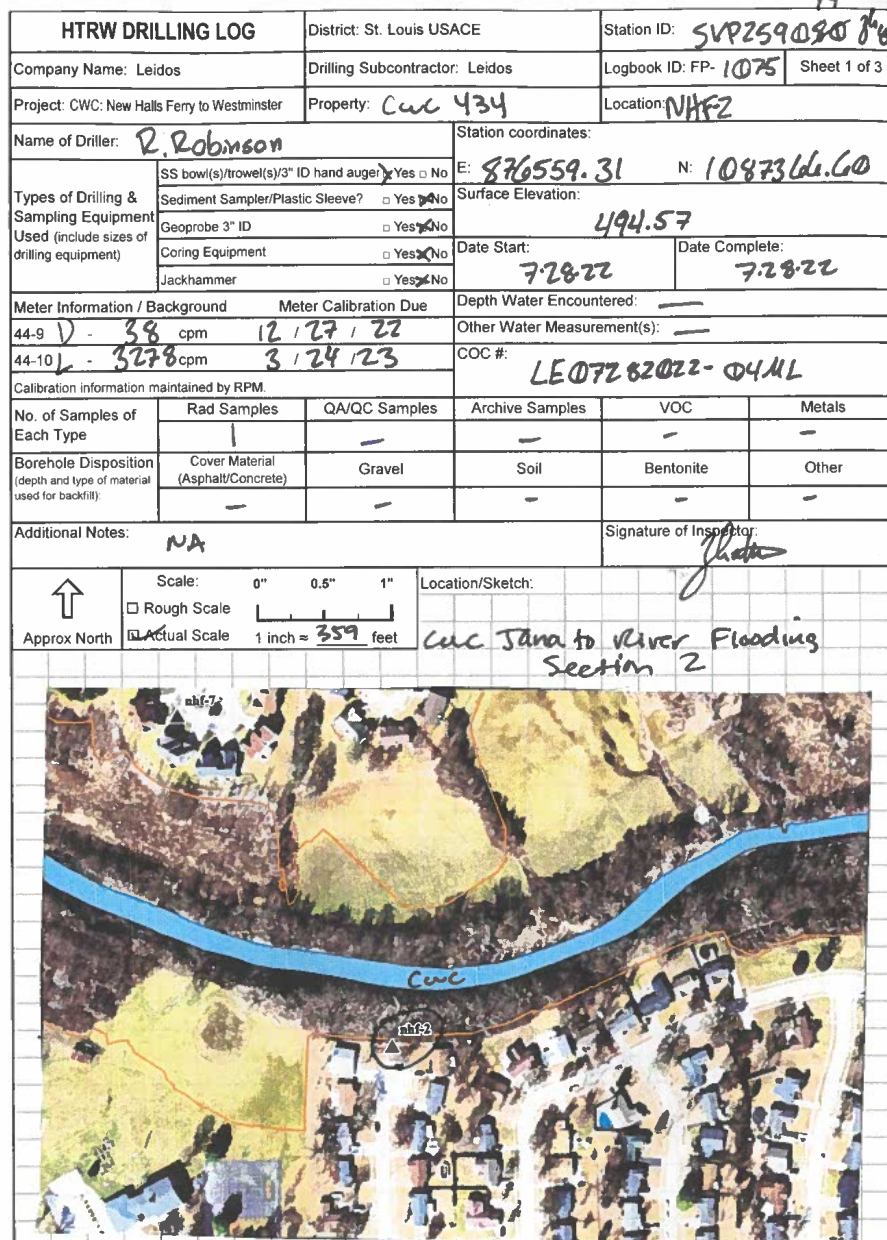 HTRW DRILLING LOG
District: St. Louis USACE
Station ID: SVP259080
Company Name: Leidos
Drilling Subcontractor: Leidos
Logbook ID: FP- 1075
Sheet 1 of 3
Project: CWC: New Halls Ferry to Westminster
Property: CWC 434
Location: NHF-2
Name of Driller: R. Robinson
Station coordinates:
E: 876559.31 N: 1087366.60
Types of Drilling &
Sampling Equipment
Used (include sizes of
drilling equipment)
SS bowl(s)/trowel(s)/3" ID hand auger Yes □ No
Sediment Sampler/Plastic Sleeve? □ Yes No
Geoprobe 3" ID □ Yes No
Coring Equipment □ Yes No
Jackhammer □ Yes No
Surface Elevation:
494.57
Date Start:
7.28.22
Date Complete:
7.28.22
Meter Information / Background Meter Calibration Due
44-9 D - 38 cpm 12 / 27 / 22
44-10 L - 3278 cpm 3 / 24 / 23
Calibration information maintained by RPM.
Depth Water Encountered: —
Other Water Measurement(s): —
COC #:
LE07282022-04ML
No. of Samples of
Each Type
Rad Samples
QA/QC Samples
Archive Samples
VOC
Metals
1 — — — —
Borehole Disposition
(depth and type of material
used for backfill):
Cover Material
(Asphalt/Concrete)
Gravel
Soil
Bentonite
Other
— — — — —
Additional Notes:
NA
Signature of Inspector:
Approx North
Scale: 0" 0.5" 1"
□ Rough Scale
Actual Scale 1 inch ≈ 359 feet
Location/Sketch:
CWC Jana to River Flooding
Section 2
nhf-7
CWC
nhf-2